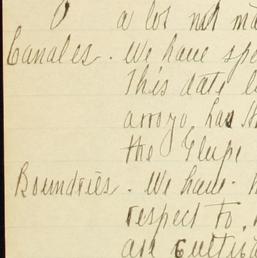 a lot not ma
Canales. We have spe
This date l
arroyo, has th
the Glupe
Boundries. We have
respect to,
are cultiva